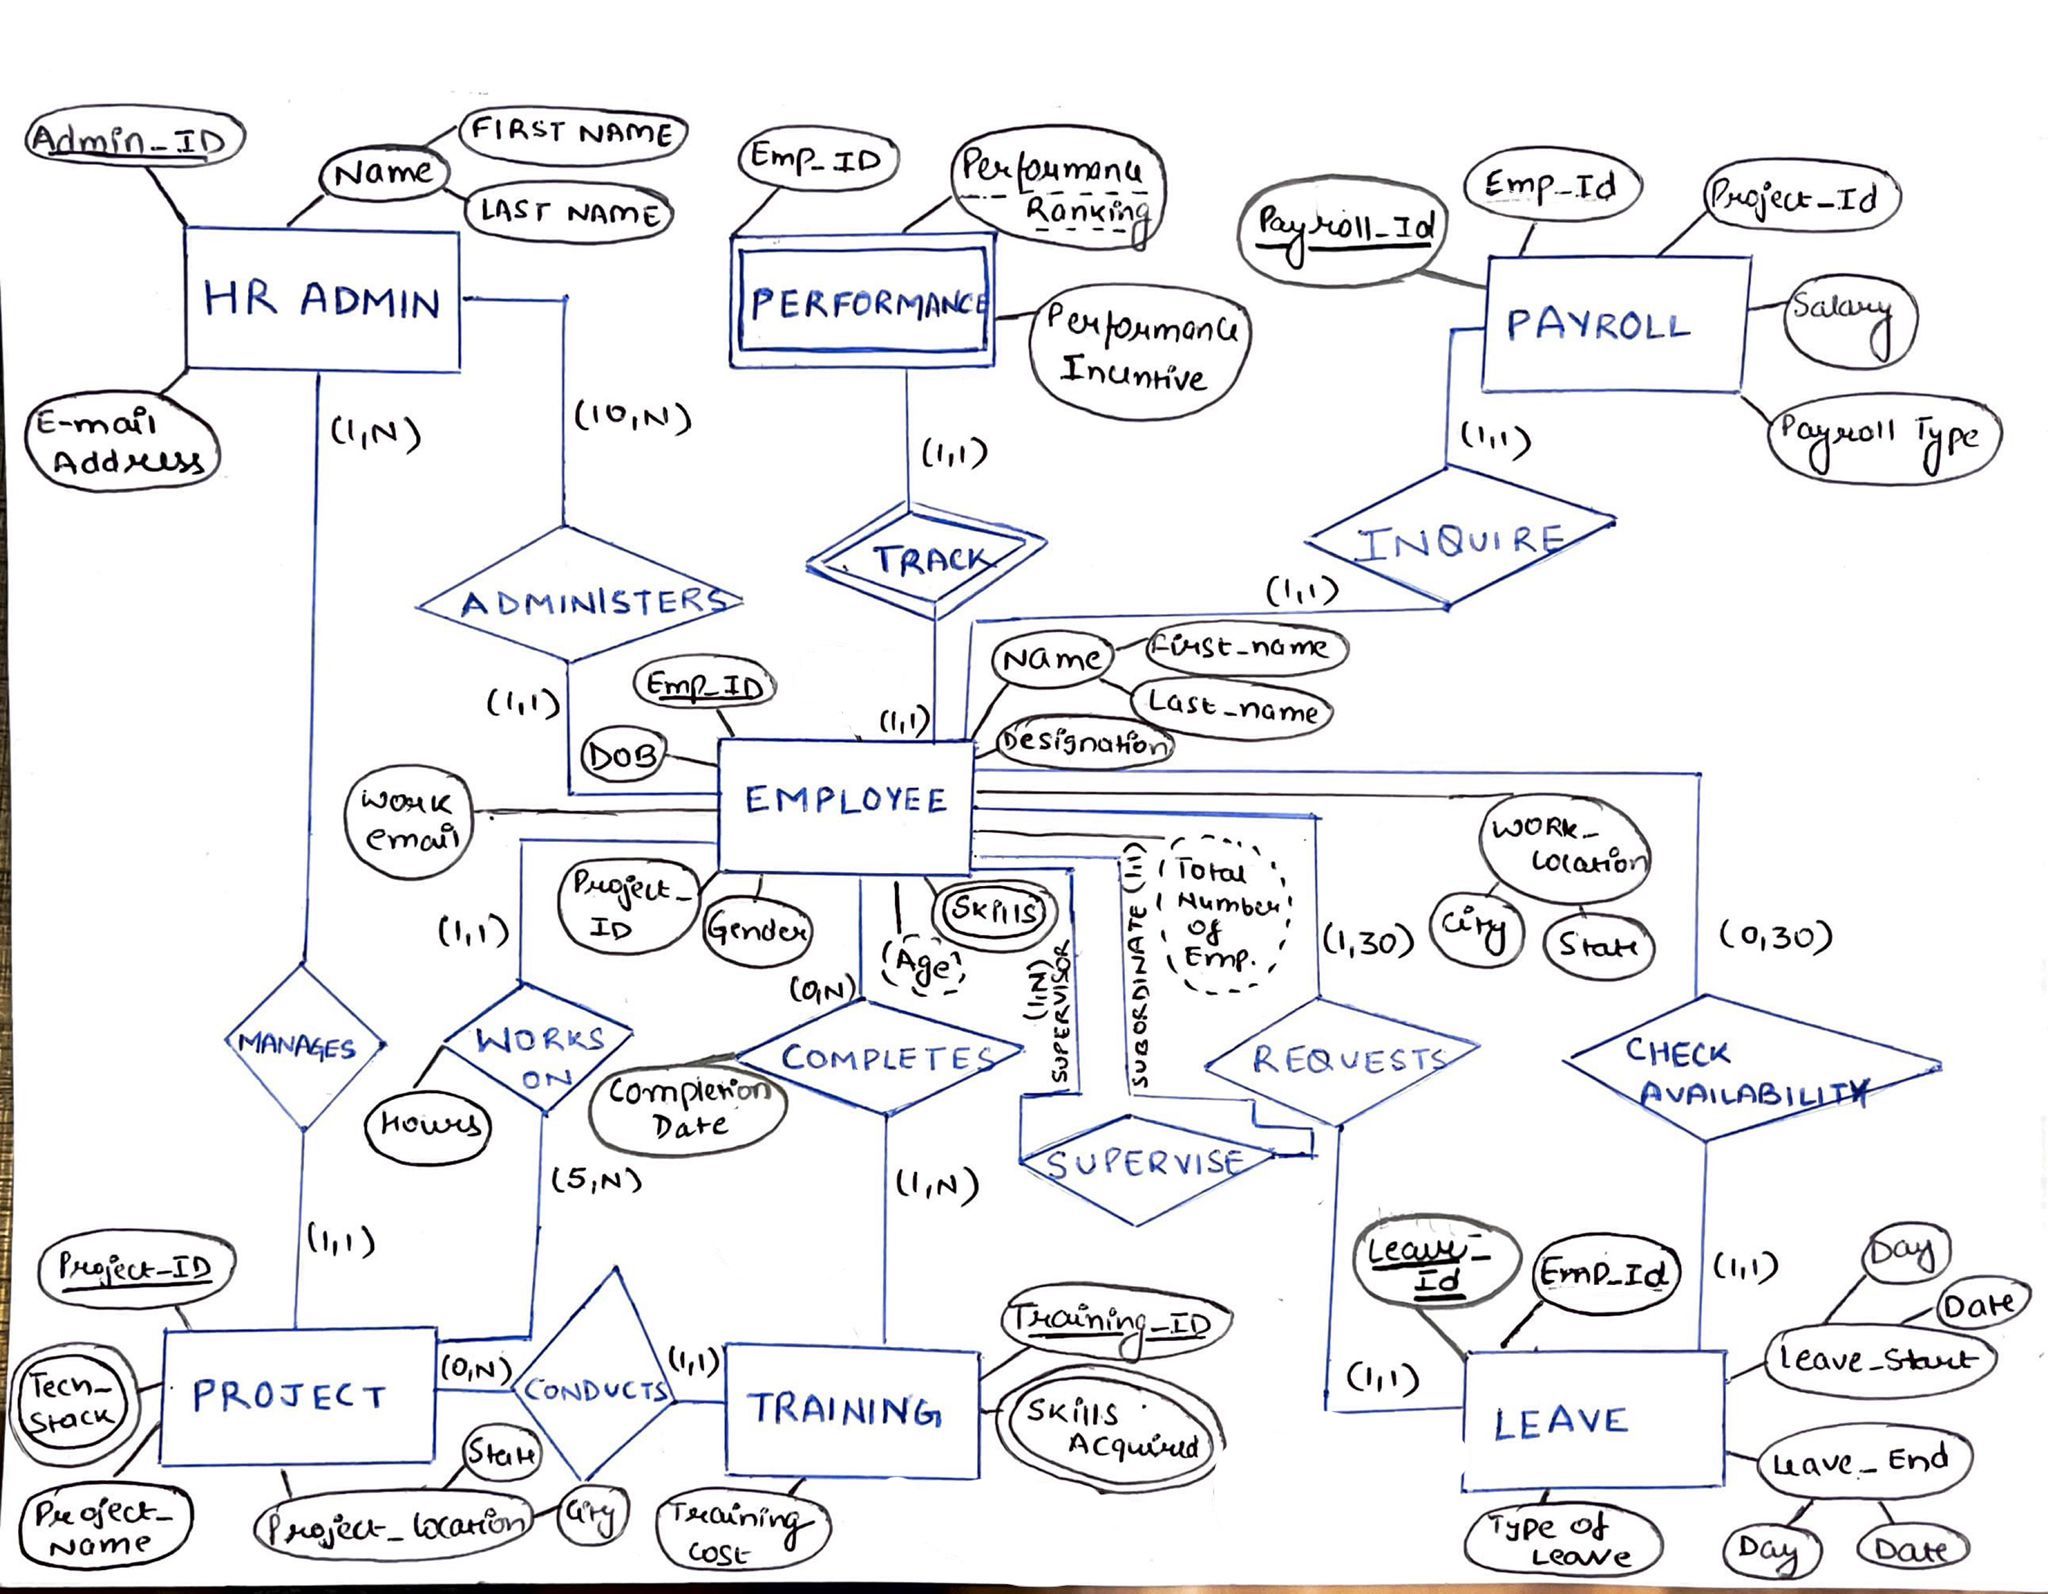 Admin_ID
Name
FIRST NAME
LAST NAME
HR ADMIN
E-mail
Address
(1,N)
(10,N)
Emp_ID
Performance
Ranking
PERFORMANCE
Performance
Incentive
(1,1)
Payroll_Id
Emp_Id
Project_Id
PAYROLL
Salary
Payroll Type
(1,1)
ADMINISTERS
TRACK
INQUIRE
(1,1)
(1,1)
(1,1)
Emp_ID
DOB
Name
First_name
Last_name
Designation
EMPLOYEE
Work
email
Project_
ID
Gender
(Age)
Skills
Total
Number
of
Emp.
Work_
Location
City
State
(1,1)
(0,N)
(1,N)
SUPERVISOR
SUBORDINATE (1,1)
(1,30)
(0,30)
MANAGES
WORKS
ON
Hours
COMPLETES
Completion
Date
SUPERVISE
REQUESTS
CHECK
AVAILABILITY
(1,1)
(5,N)
(1,N)
(1,1)
(1,1)
Project_ID
Tech_
Stack
Project_
Name
PROJECT
Project_Location
State
City
(0,N)
CONDUCTS
(1,1)
TRAINING
Training_ID
Skills
Acquired
Training
Cost
Leave_
Id
Emp_Id
LEAVE
Day
Date
Leave_Start
Leave_End
Day
Date
Type of
Leave